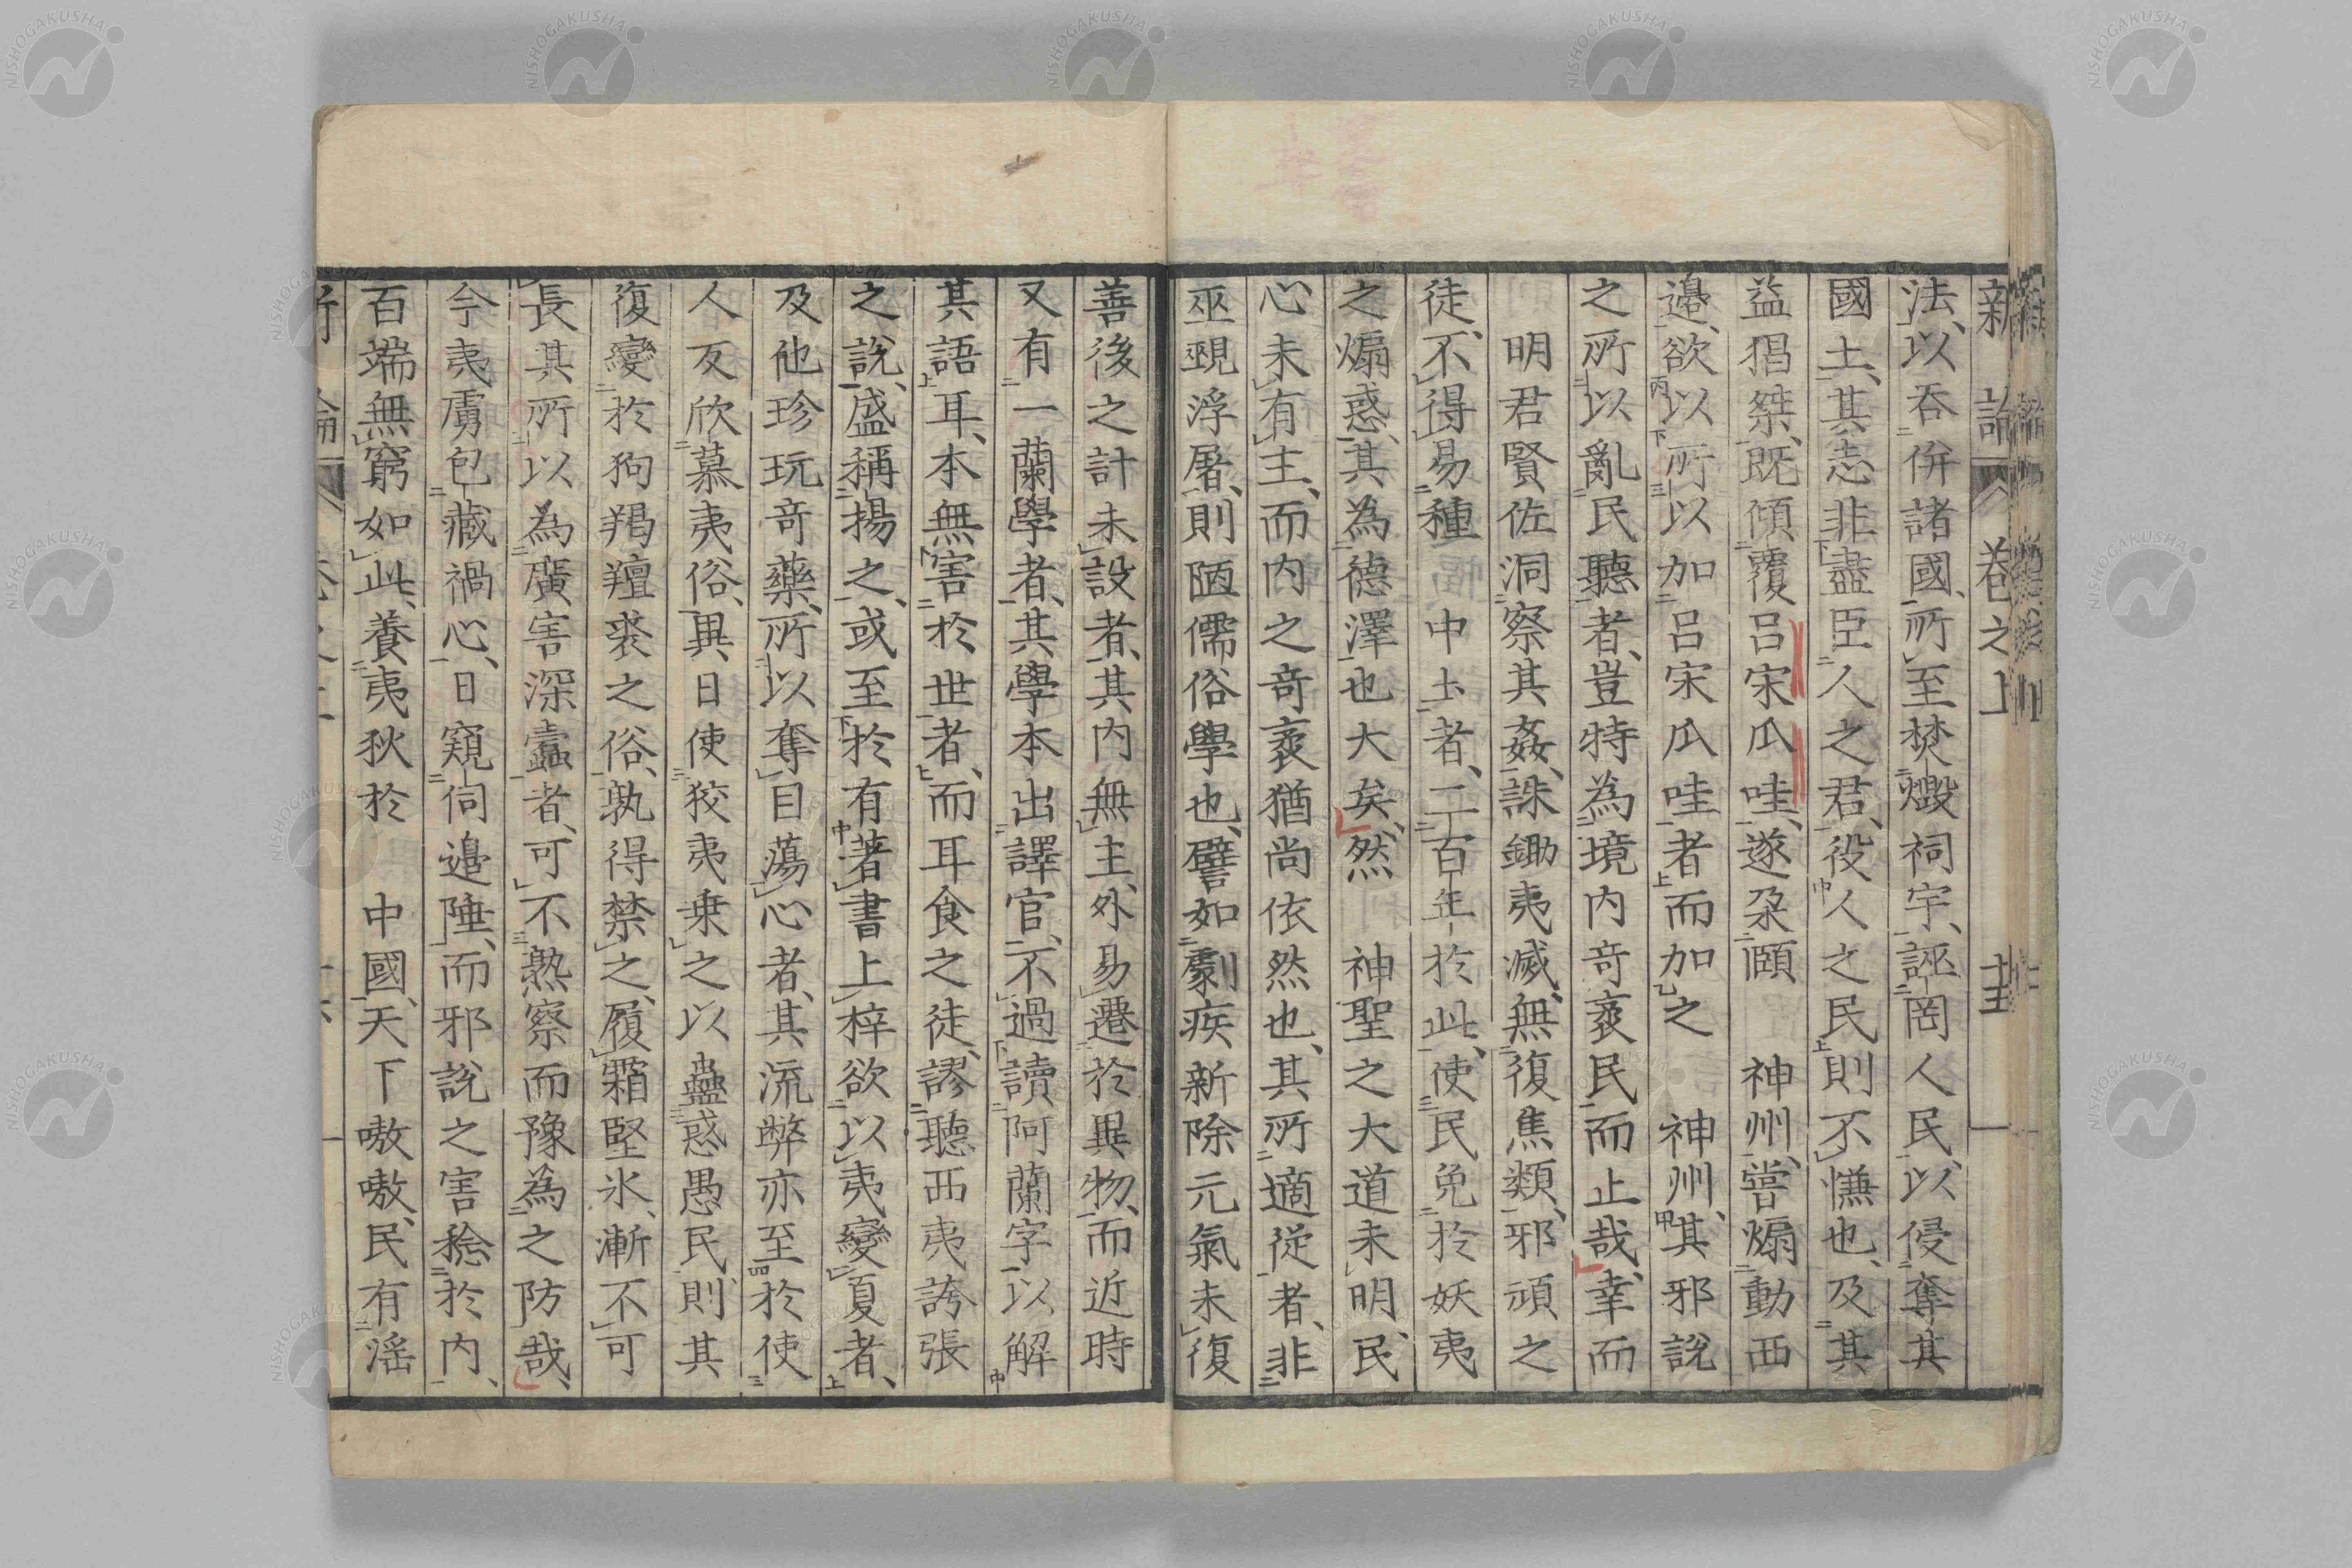 新論 卷之上 十五
法、以吞併諸國、所至焚燬祠宇、誣罔人民、以侵奪其
國土、其志非盡臣人之君、役人之民則不慊也、及其
益猖桀、既傾覆呂宋瓜哇、遂朶頤 神州、嘗煽動西
邊、欲以所以加呂宋瓜哇者而加之 神州、其邪說
之所以亂民聽者、豈特為境内奇衺民而止哉、幸而
明君賢佐洞察其姦、誅鋤夷滅、無復焦類、邪頑之
徒、不得易種 中土者、二百年於此、使民免於妖夷
之煽惑、其為德澤也大矣、然 神聖之大道未明、民
心未有主、而内之奇衺猶尚依然也、其所適從者、非
巫覡浮屠、則陋儒俗學也、譬如劇疾新除元氣未復
善後之計未設者、其内無主、外易遷於異物、而近時
又有一蘭學者、其學本出譯官、不過讀阿蘭字以解
其語耳、本無害於世者、而耳食之徒、謬聽西夷誇張
之說、盛稱揚之、或至於有著書上梓欲以夷變夏者、
及他珍玩奇藥、所以奪目蕩心者、其流弊亦至於使
人反欣慕夷俗、異日使狡夷乗之以蠱惑愚民、則其
復變於狗羯羶裘之俗、孰得禁之、履霜堅氷、漸不可
長其所以為廣害深蠧者、可不熟察而豫為之防哉、
今夷虜包藏禍心、日窺伺邊陲、而邪說之害稔於内、
百端無窮如此、養夷狄於 中國、天下嗷嗷、民有滛
NISHOGAKUSHA